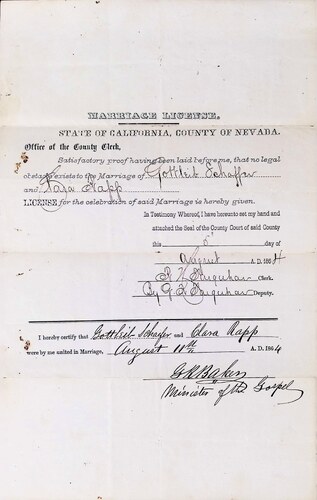 MARRIAGE LICENSE.
STATE OF CALIFORNIA, COUNTY OF NEVADA.
Office of the County Clerk,
Satisfactory proof having been laid before me, that no legal
obstacle exists to the Marriage of Gottlieb Schaffer
and Napp
LICENSE for the celebration of said Marriage is hereby given.
In Testimony Whereof, I have hereunto set my hand and
attached the Seal of the County Court of said County
this day of
August A. D. 1864
Farquhar Clerk.
By G. K. Farquhar Deputy.
I hereby certify that Gottlieb Schafer and Clara Rapp
were by me united in Marriage, August 11th A. D. 1864
Baker
Minister of the Gospel